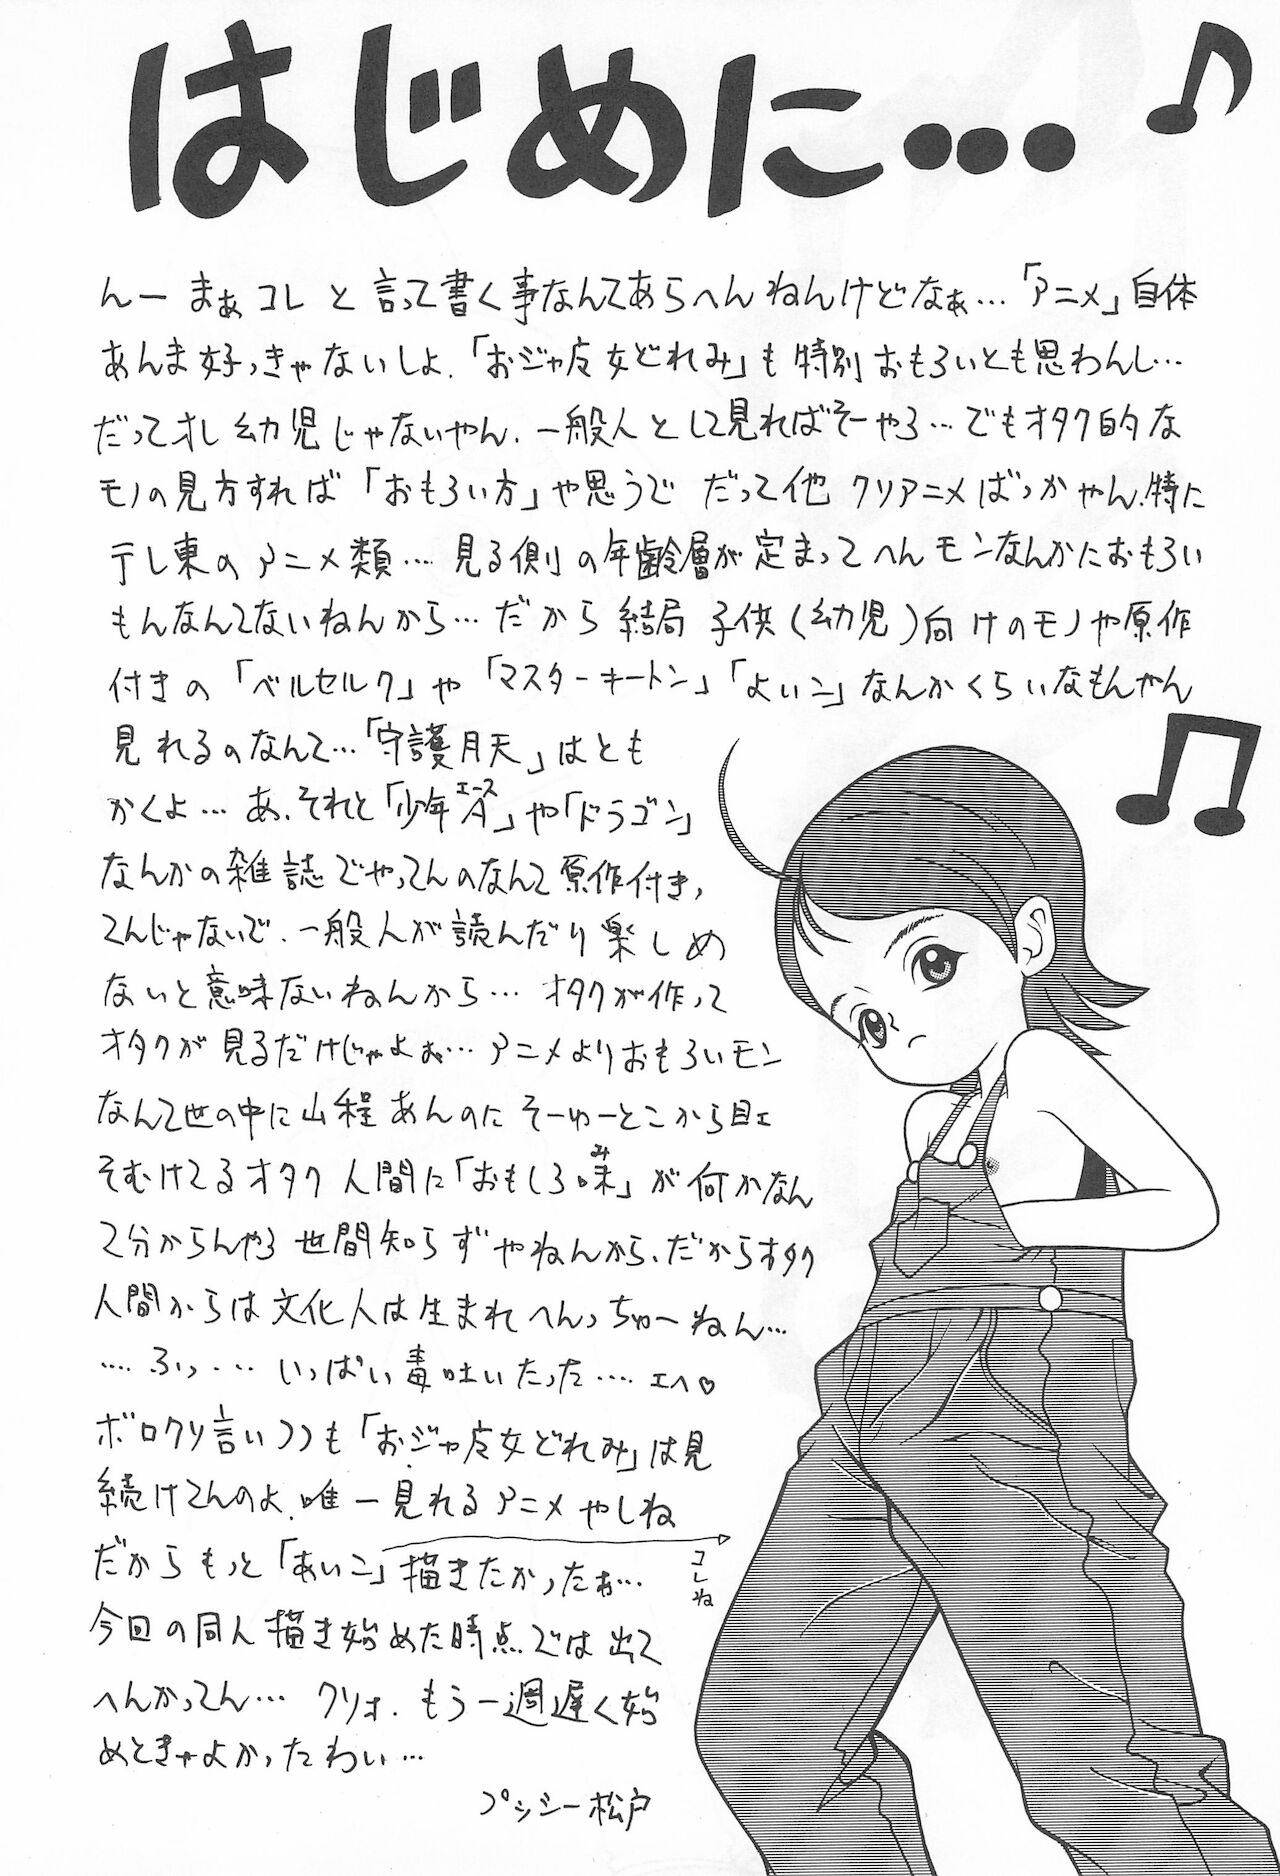 はじめに…
んー まぁ コレ と 言って書く事なんてあらへんねんけどなぁ…「アニメ」自体
あんま好っきゃないしよ.「おジャ魔女どれみ」も 特別 おもろいとも思わんし…
だってオレ 幼児じゃないやん. 一般人として見ればそーやろ…でもオタク的な
モノの見方すれば「おもろい方」や思うで だって他 クソアニメばっかやん.特に
テレ東の アニメ類… 見る側の年齢層が定まってへんモンなんかにおもろい
もんなんてないねんから…だから 結局 子供(幼児)向けのモノや原作
付きの「ベルセルク」や「マスターキートン」「よいこ」なんかくらいなもんやん
見れるのなんて…「守護月天」はとも
かくよ… あ、それと「少年A」や「ドラゴン」
エース
なんかの雑誌でやってんのなんて原作付き,
てんじゃないで. 一般人が読んだり楽しめ
ないと意味ないねんから… オタクが作って
オタクが見るだけじゃよぉ… アニメよりおもろいモン
なんて世の中に山程あんのに そーゆーとこから目ェ
そむけてるオタク人間に「おもしろ味」が何かなん
み
て分からんやろ 世間知らずやねんから、だからオタク
人間からは文化人は生まれへんっちゅーねん…
…. ふっ… いっぱい毒吐いたった…. エヘ♡
ボロクソ言いつつも「おジャ魔女どれみ」は見
続けてんのよ.唯一見れるアニメやしね
だからもっと「あいこ」描きたかったぉ…
コレね
今回の同人描き始めた時点では出て
へんかってん… クソォ. もう一週遅く始
めときゃよかったわい…
プッシー松戸